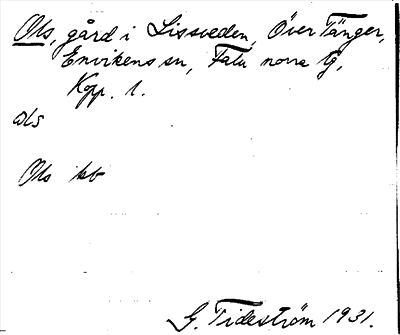 Ols, gård i Lissveden, Över Tänger,
Envikens sn, Falu norra tg,
Kopp. l.
ols
Ols kb
G. Tideström 1931.